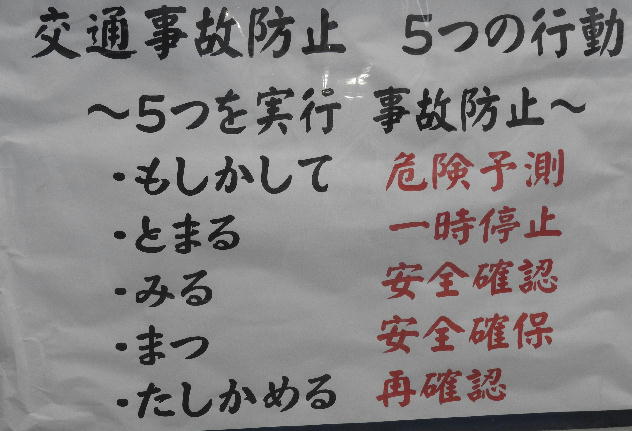 交通事故防止 5つの行動
～5つを実行 事故防止～
・もしかして 危険予測
・とまる 一時停止
・みる 安全確認
・まつ 安全確保
・たしかめる 再確認